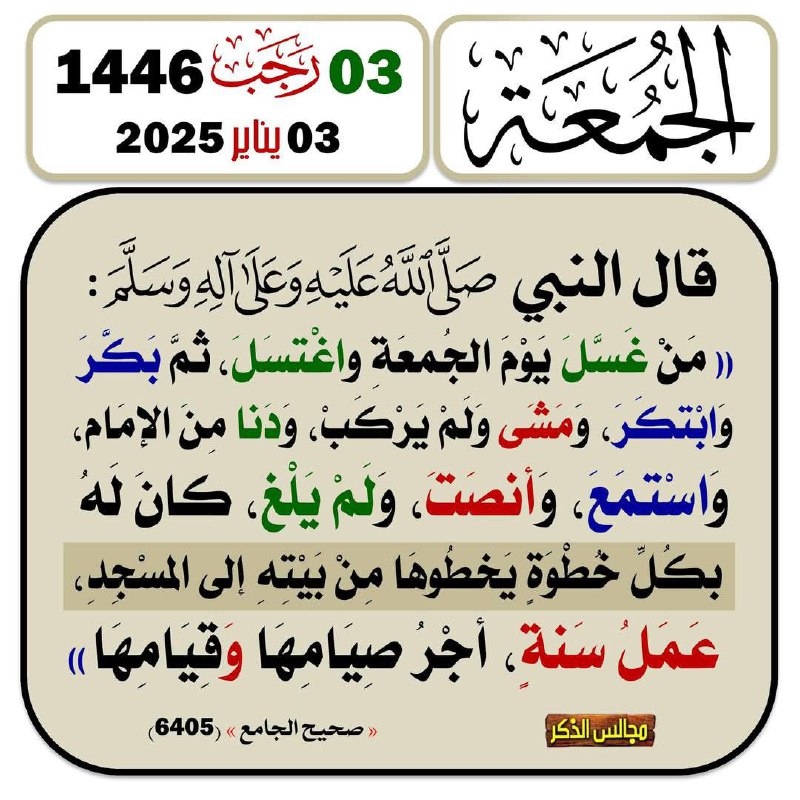 الجُمُعَة
03 رَجَب 1446
03 يناير 2025
قال النبي صَلَّى اللَّهُ عَلَيْهِ وَعَلَى آلِهِ وَسَلَّمَ :
(( مَنْ غَسَّلَ يَوْمَ الجُمعَةِ واغْتسَلَ، ثمَّ بَكَّرَ
وَابْتكَرَ، وَمَشى وَلمْ يَرْكَبْ، وَدَنا مِنَ الإمَام،
وَاسْتمَعَ، وَأنصَتَ، وَلَمْ يَلْغ، كانَ لَهُ
بكُلِّ خُطْوَةٍ يَخطُوهَا مِنْ بَيْتهِ إلى المسْجِدِ،
عَمَلُ سَنةٍ، أجْرُ صِيَامِهَا وَقِيَامِهَا ))
« صحيح الجامع » (6405)
مجالس الذكر